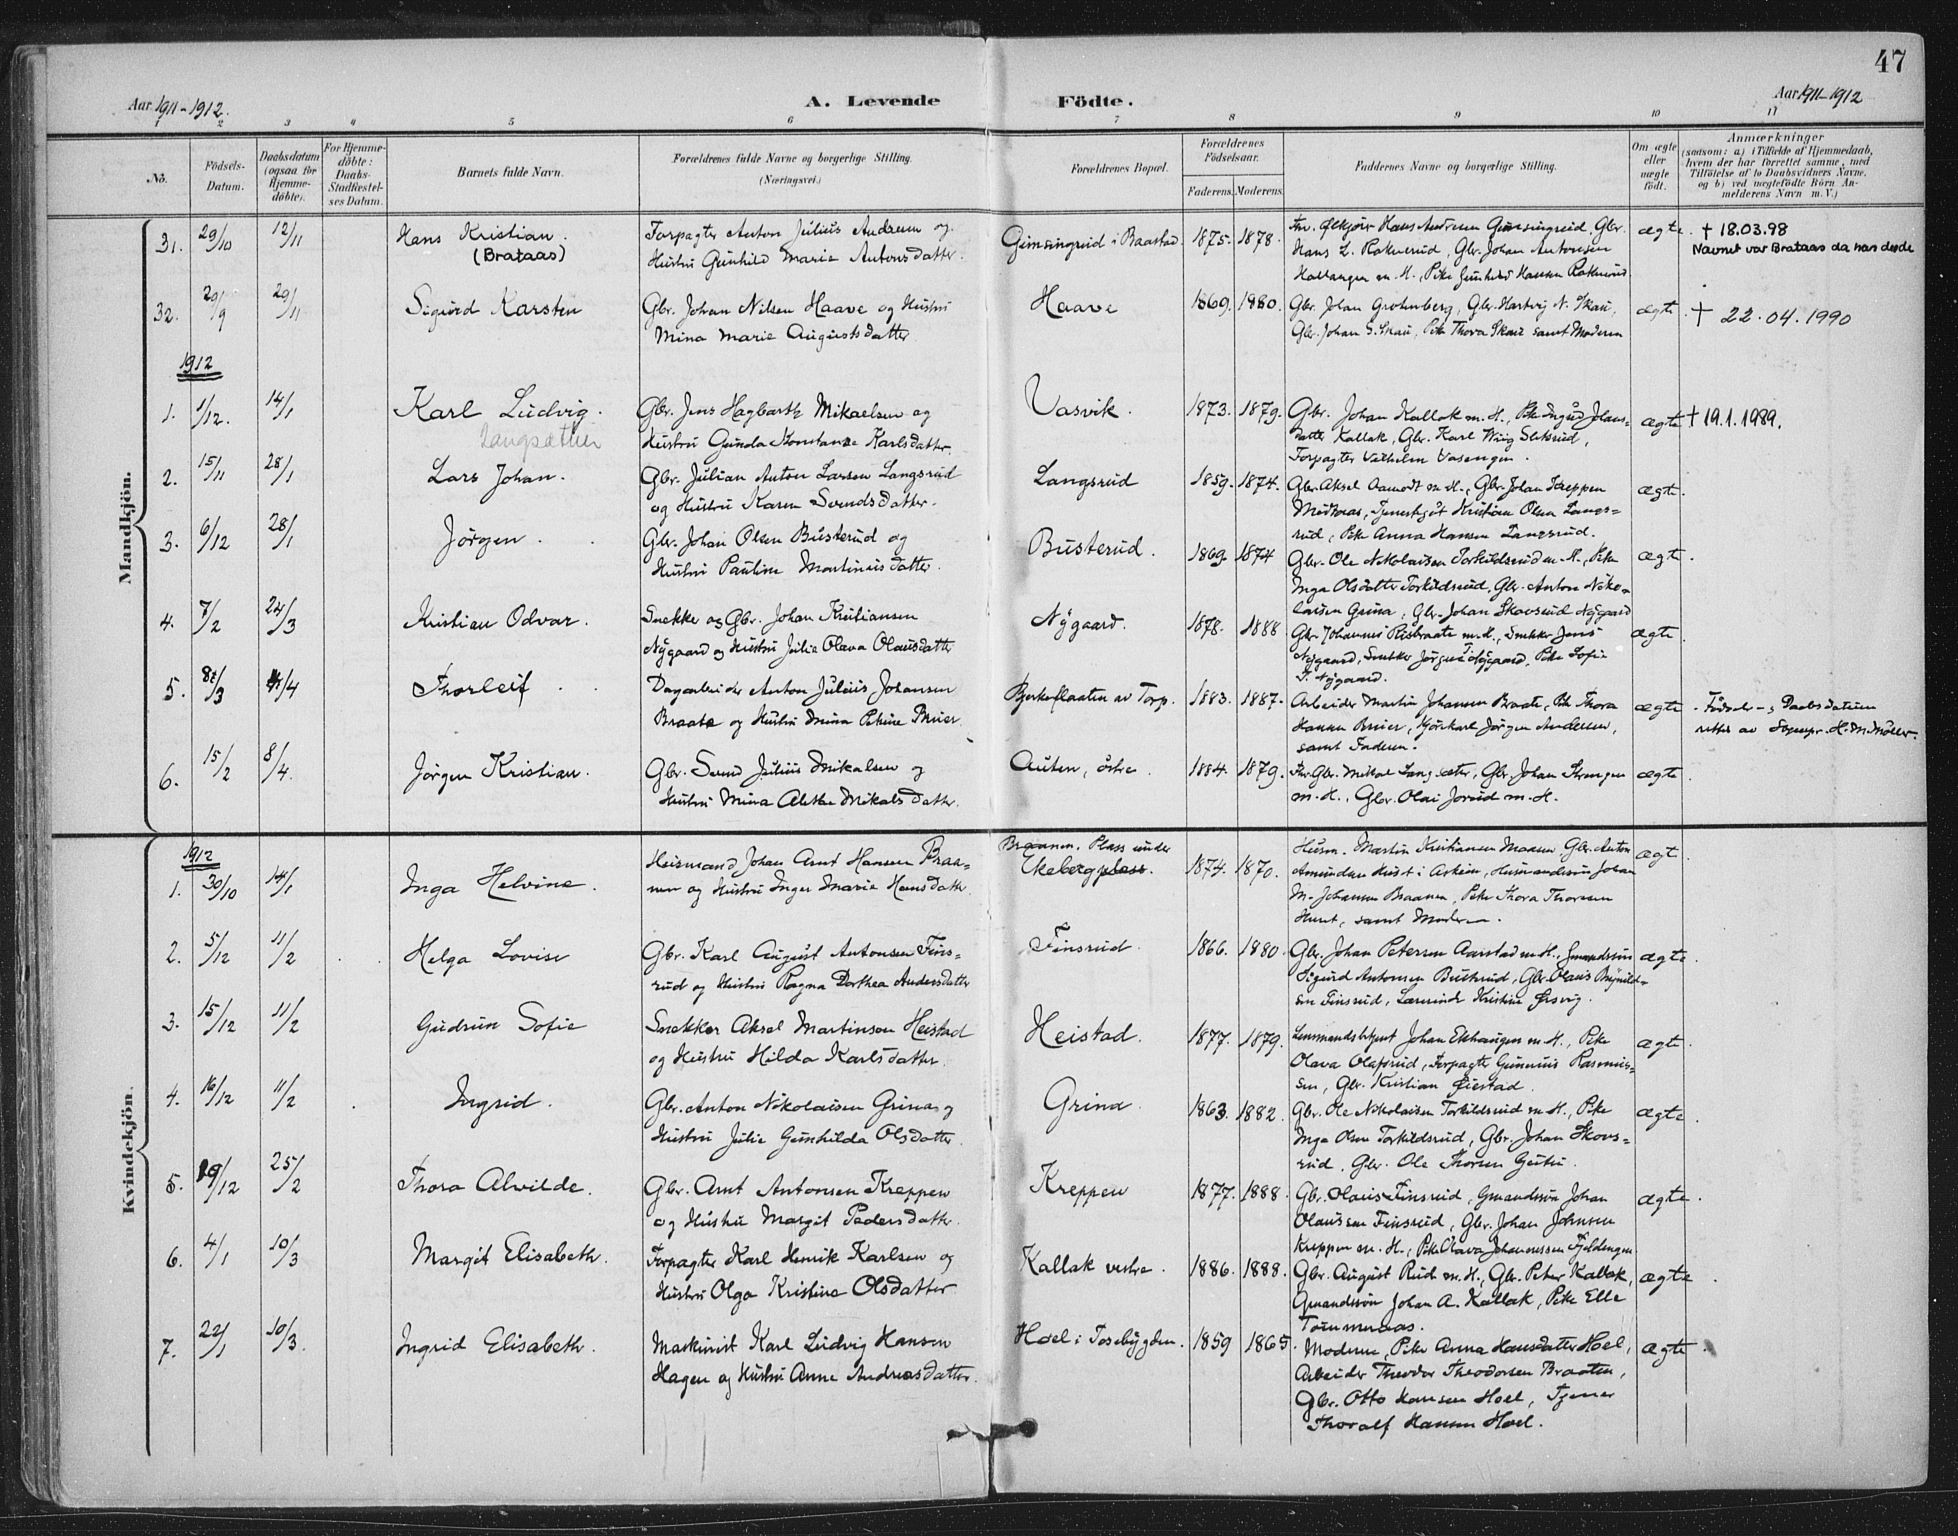 47
Aar 1911-1912.
A. Levende Födte.
Aar 1911-1912
1 2 3 4 5 6 7 8 9 10 11
No.
Födsels-Datum.
Daabsdatum (ogsaa for Hjemmedöbte).
For Hjemmedöbte: Daabs-Stadfæstelses Datum.
Barnets fulde Navn.
Forældrenes fulde Navne og borgerlige Stilling.
(Næringsvei.)
Forældrenes Bopæl.
Forældrenes Födselsaar.
Faderens. Moderens.
Faddernes Navne og borgerlige Stilling.
Om ægte eller uægte födt.
Anmærkninger
(saasom: a) i Tilfælde af Hjemmedaab, hvem der har forrettet samme, med Tilföielse af to Daabsvidners Navne, og b) ved uægtefödte Börn Anmelderens Navn m. V.)
Mandkjön.
31. 29/10 12/11 Hans Kristian. (Brataas)
Forpagter Anton Julius Andersen og
Hustru Gunhild Marie Antonsdatter.
Gimsingrud i Baastad. 1875. 1878.
Hans L. Raknerud, Gbr. Johan Antonsen
ægte. † 18.03.98
Navnet var Brataas da han døde
32. 29/9 29/11 Sigurd Karsten
Gbr. Johan Nilsen Haave og Hustru
Mina Marie Augustsdatter
Haave 1869. 1880.
Gbr. Johan Grotenberg, Gbr. Hartvig N. Skau,
Gbr. Johan S. Skau, Pike Thora Skau samt Moderen
ægte. † 22.04.1990
1912
1. 1/12. 14/1 Karl Ludvig.
Langsæther
Gbr. Jens Hagbarth Mikaelsen og
Hustru Gunda Konstanse Karlsdatter.
Vasvik. 1873. 1879.
Gbr. Johan Kallak m. H., Pike Ingrid Johans-
datter Kallak, Gbr. Karl Wiig Sletsrud,
Forpagter Vilhelm Vasengen.
ægte † 19.1.1989.
2. 15/11 28/1 Lars Johan.
Gbr. Julian Anton Larsen Langsrud
og Hustru Karen Svendsdatter.
Langsrud 1859. 1874.
Gbr. Aksel Aamodt m. H., Gbr. Johan Kreppen
Moskaas, Tjenestgut Kristian Olsen Langs-
rud, Pike Anna Hansen Langsrud.
ægte.
3. 6/12 28/1 Jørgen.
Gbr. Johan Olsen Busterud og
Hustru Pauline Martiniusdatter.
Busterud. 1869. 1874
Gbr. Ole Nikolaisen Torkildsrud m. H., Pike
Inga Olsdatter Torkildsrud, Gbr. Anton Niko-
laisen Grina, Gbr. Johan Skovsrud
ægte.
4. 7/2 24/3 Kristian Odvar.
Snekker og Gbr. Johan Kristiansen
Nygaard og Hustru Julie Olava Olausdatter
Nygaard. 1878. 1888
Gbr. Johannes Risbraate m. H., Snekker Jens
Nygaard, Snekker Jørgen Nygaard, Pike Sofie
J. Nygaard.
ægte.
5. 8/3 4/4 Thorleif.
Dagarbeider Anton Julius Johansen
Braate og Hustru Mina Petrine Bruer.
Bjerkeflaaten av Torp. 1883. 1887.
Arbeider Martin Johansen Braate, Pike Thora
Hansen Bruer, Kjørekarl Jørgen Andersen,
samt Faderen.
ægte. Fødsel- og Daabsdatum
rettet av Sogneprest H. M. Møller.
6. 15/2 8/4. Jørgen Kristian.
Gbr. Svend Julius Mikalsen og
Hustru Mina Alette Mikalsdatter.
Auten, østre. 1884. 1879.
Fhv. Gbr. Mikal Langsæter, Gbr. Johan Strengen
m. H., Gbr. Olai Jorud m. H.
ægte.
Kvindekjön.
1912
1. 30/10 14/1 Inga Helvine.
Husmand Johan Arnt Hansen Braa-
nen og Hustru Inger Marie Hansdatter.
Braanen, Plass under
Ekeberg plass. 1874. 1870.
Husm. Martin Kristiansen Moasen, Gbr. Anton
Amundsen Hust i Askim, Husmandssøn Johan
M. Johansen Braanen, Pike Thora Thoresen
Hust, samt Moderen.
ægte.
2. 5/12 11/2 Helga Lovise
Gbr. Karl August Antonsen Fins-
rud og Hustru Ragna Dorthea Andersdatter
Finsrud. 1866. 1880.
Gbr. Johan Petersen Aarstad m. H., Gmandssøn
Sigurd Antonsen Busterud, Gbr. Olaus Brynild-
sen Finsrud, Lærerinde Kristine Ørsvig.
ægte.
3. 15/12 11/2 Gudrun Sofie
Snekker Aksel Martinsen Heistad
og Hustru Hilda Karlsdatter.
Heistad. 1877. 1879.
Lensmandsbetjent Johan Ekhaugen m. H., Pike
Olava Olafsrud, Forpagter Gunerius Rasmus-
sen, Gbr. Kristian Øiestad.
ægte.
4. 16/12 11/2 Ingrid.
Gbr. Anton Nikolaisen Grina og
Hustru Julie Gunhilda Olsdatter.
Grina. 1863. 1882.
Gbr. Ole Nikolaisen Torkildsrud m. H., Pike
Inga Olsen Torkildsrud, Gbr. Johan Skovs-
rud, Gbr. Ole Thoresen Gutu.
ægte.
5. 19/12 25/2 Thora Alvilde.
Gbr. Arnt Antonsen Kreppen
og Hustru Margit Pedersdatter.
Kreppen 1877. 1888.
Gbr. Olaus Finsrud, Gmandssøn Johan
Olaussen Finsrud, Gbr. Johan Johnsen
Kreppen m. H., Pike Olava Johannessen Fjeldengen
ægte.
6. 4/1 10/3 Margit Elisabeth.
Forpagter Karl Henrik Karlsen og
Hustru Olga Kristine Olsdatter
Kallak vestre. 1886. 1888.
Gbr. August Rud m. H., Gbr. Peter Kallak,
Gmandssøn Johan A. Kallak, Pike Elle
Tømmeraas.
ægte.
7. 22/1 10/3. Ingrid Elisabeth.
Maskinist Karl Ludvig Hansen
Hagen og Hustru Anne Andreasdatter.
Hoel i Tosebygden. 1859 1865.
Moderen, Pike Anna Hansdatter Hoel,
Arbeider Theodor Theodorsen Braaten,
Gbr. Otto Hansen Hoel, Tjener
Thoralf Hansen Hoel.
ægte.